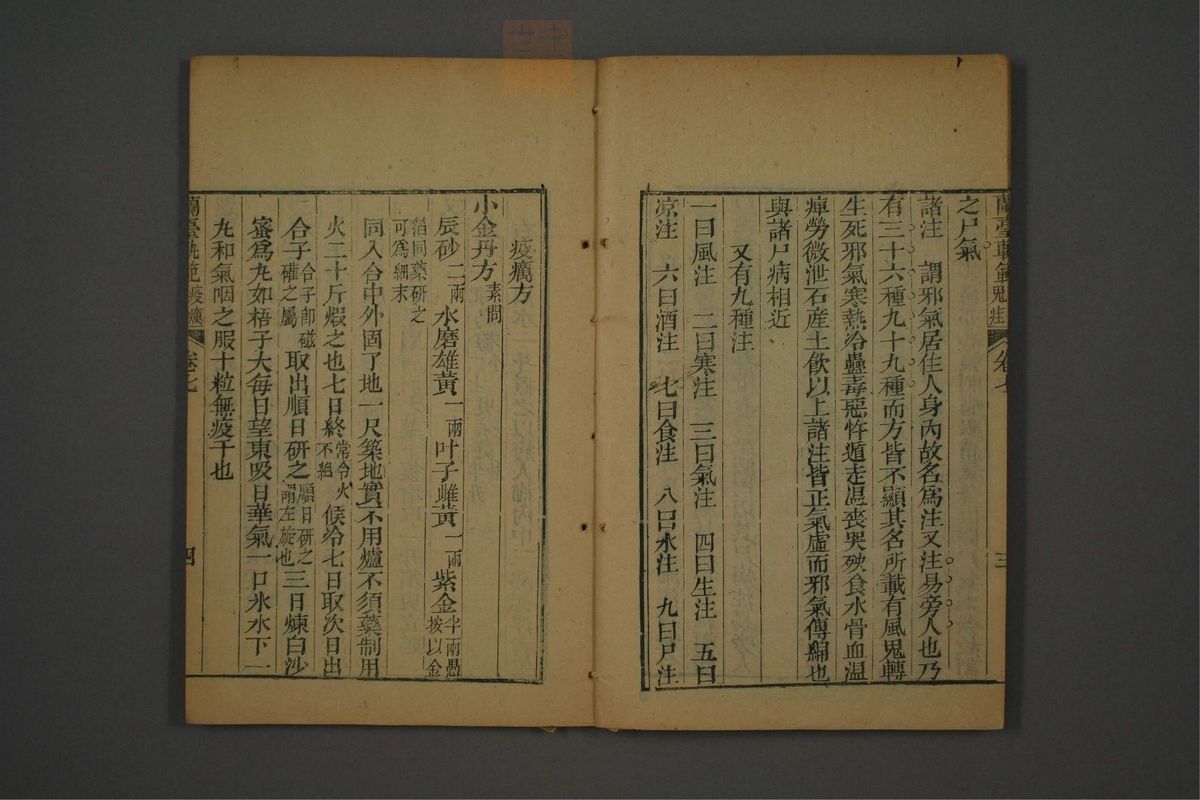 蘭臺軌範 鬼疰 卷七 三
之尸氣
諸注 謂邪氣居住人身內故名爲注又注易旁人也乃
有三十六種九十九種而方皆不顯其名所載有風鬼轉
生死邪氣寒熱冷蠱毒惡忤遁走温喪哭殃食水骨血温
痺勞微泄石產土飲以上諸注皆正氣虛而邪氣傳
與諸尸病相近
又有九種注
一曰風注 二曰寒注 三曰氣注 四曰生注 五曰
凉注 六曰酒注 七曰食注 八曰水注 九曰尸注
疫癘方
小金丹方 素問
辰砂 二兩 水磨雄黃 一兩 叶子雌黃 一兩 紫金 半兩愚按以金
箔同藥研之可爲細末
同入合中外固了地一尺築地實不用爐不須藥制用
火二十斤煅之也七日終 常令火不絕 候冷七日取次日出
合子 合子卽磁礶之屬 取出順日研之 順日研之謂左旋也 三日煉白沙
蜜爲丸如梧子大每日望東吸日華氣一口氷水下一
丸和氣咽之服十粒無疫干也
蘭臺軌範 疫癘 卷七 四